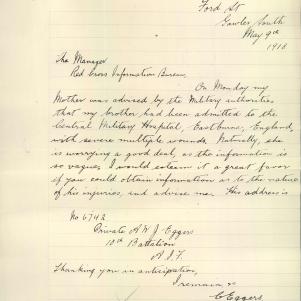 Ford St
Gawler South
May 9th
1918
The Manager
Red Cross Information Bureau,
On Monday my
Mother was advised by the Military authorities
that my brother had been admitted to the
Central Military Hospital, Eastburne, England,
with severe multiple wounds. Naturally, she
is worrying a good deal, as the information is
so vague. I would esteem it a great favor
if you could obtain information as to the nature
of his injuries, and advise me. His address is
No 6742
Private A W J Eggers
10th Battalion
A I F
Thanking you in anticipation,
I remain
C Eggers